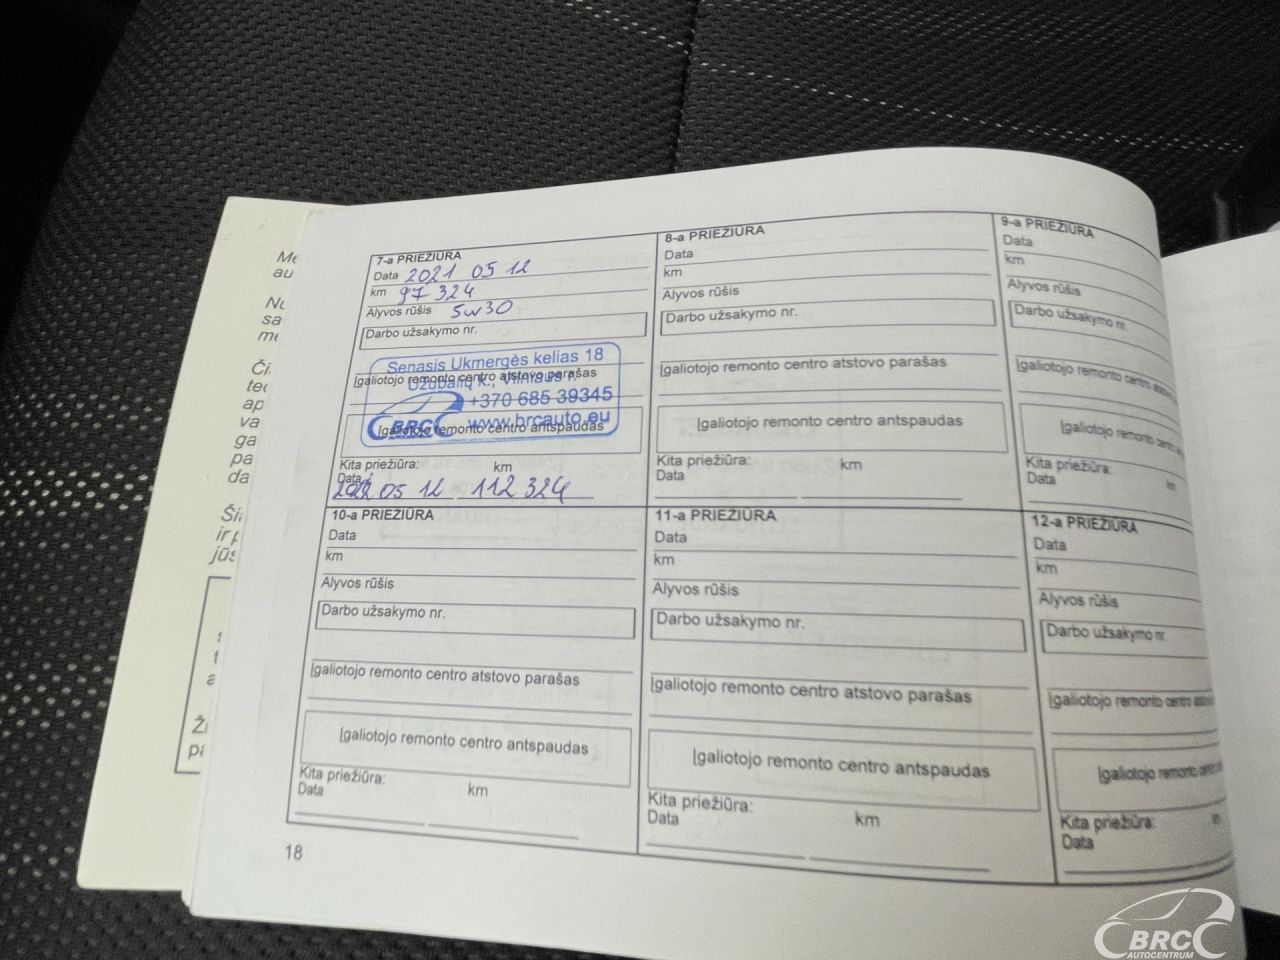 Me
au
Nu
sa
me
Či
te
ap
va
ga
pa
da
Ši
ir p
jūs
Ži
pa
7-a PRIEŽIŪRA
Data 2021 05 12
km 97 324
Alyvos rūšis 5w30
Darbo užsakymo nr.
Senasis Ukmergės kelias 18
Užubalių k., Vilniaus r.
Įgaliotojo remonto centro atstovo parašas
+370 685 39345
BRC www.brcauto.eu
Įgaliotojo remonto centro antspaudas
Kita priežiūra: km
Data
2022 05 12 112 324
8-a PRIEŽIŪRA
Data
km
Alyvos rūšis
Darbo užsakymo nr.
Įgaliotojo remonto centro atstovo parašas
Įgaliotojo remonto centro antspaudas
Kita priežiūra: km
Data
9-a PRIEŽIŪRA
Data
km
Alyvos rūšis
Darbo užsakymo nr.
Įgaliotojo remonto centro
Įgaliotojo remonto
Kita priežiūra:
Data km
10-a PRIEŽIŪRA
Data
km
Alyvos rūšis
Darbo užsakymo nr.
Įgaliotojo remonto centro atstovo parašas
Įgaliotojo remonto centro antspaudas
Kita priežiūra:
Data km
11-a PRIEŽIŪRA
Data
km
Alyvos rūšis
Darbo užsakymo nr.
Įgaliotojo remonto centro atstovo parašas
Įgaliotojo remonto centro antspaudas
Kita priežiūra:
Data km
12-a PRIEŽIŪRA
Data
km
Alyvos rūšis
Darbo užsakymo nr.
Įgaliotojo remonto centro
Įgaliotojo remonto
Kita priežiūra:
Data
18
BRC
AUTOCENTRUM